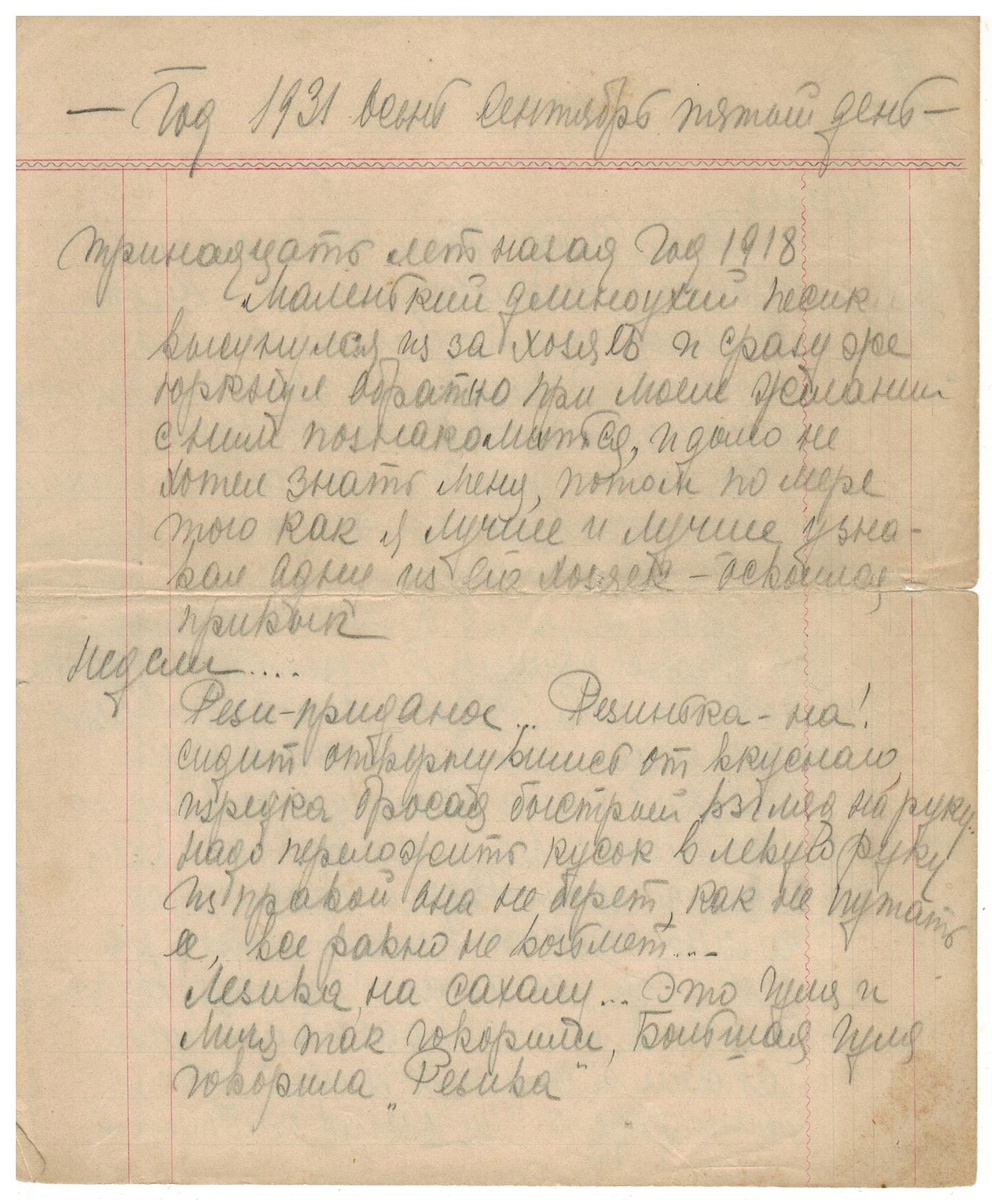 — Год 1931 Осень Сентябрь пятый день —
Тринадцать лет назад Год 1918
Маленький длиноухий песик
высунулся из за хозяев и сразу же
юркнул обратно при моем желании
с ним познакомиться, и долго не
хотел знать меня, потом по мере
того как я лучше и лучше узна-
вал одних из его хозяек – освоился,
привык
Недели....
Рези-приданое... Резинька – на!
сидит отвернувшись от вкуснаго
изредка бросая быстрый взгляд на руку.
надо переложить кусок в левую руку
из правой она не берет, как не путать
ее, все равно не возьмет...
Лезика, на сахалу... Это Цуля и
Миля так говорили, Большая Цуля
говорила „Резика"